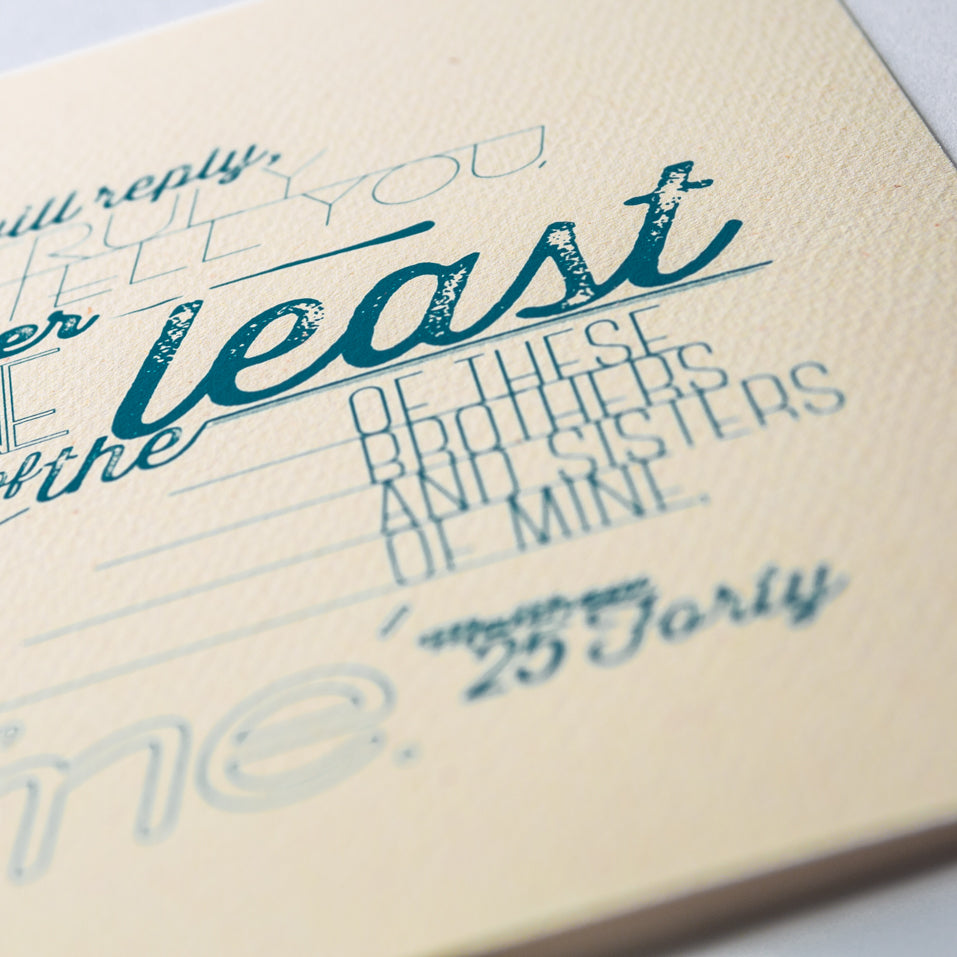 will reply,
TRULY
TELL YOU,
er least
NE
of the
OF THESE
BROTHERS
AND SISTERS
OF MINE.
Matthew
25 Forty
me.